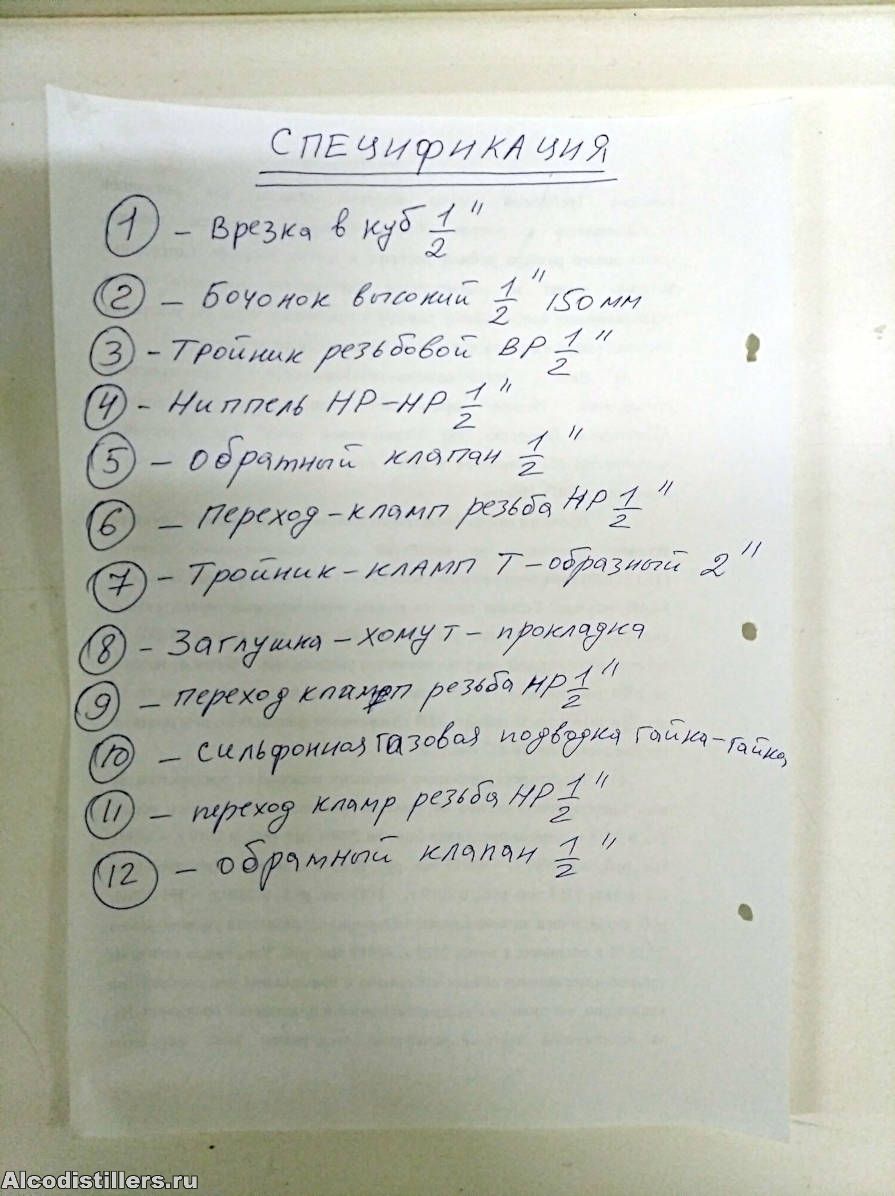 СПЕЦИФИКАЦИЯ
1 – Врезка в куб 1/2"
2 – Бочонок высокий 1/2" 150мм
3 – Тройник резьбовой ВР 1/2"
4 – Ниппель НР–НР 1/2"
5 – Обратный клапан 1/2"
6 – Переход–кламп резьба НР 1/2"
7 – Тройник–кламп Т–образный 2"
8 – Заглушка–хомут–прокладка
9 – переход кламп резьба НР 1/2"
10 – сильфонная газовая подводка гайка–гайка
11 – переход кламр резьба НР 1/2"
12 – обратный клапан 1/2"
Alcodistillers.ru